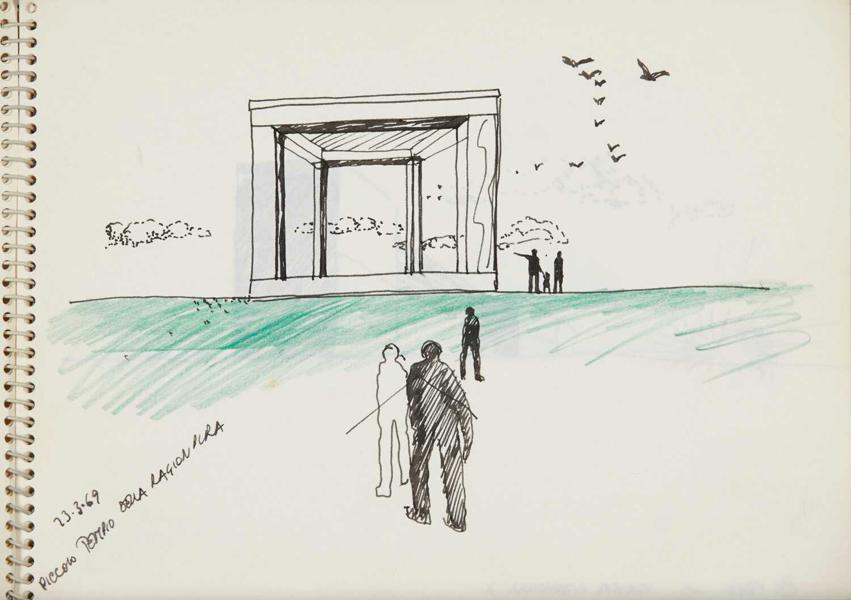 23·3·69
PICCOLO TEATRO DELLA RAGION PURA